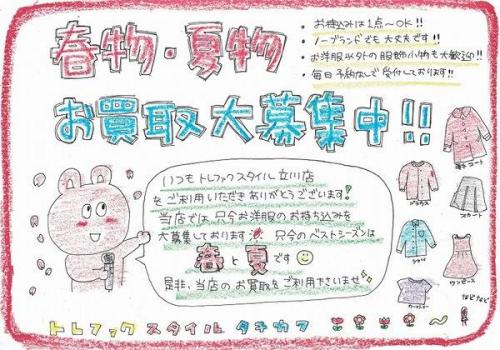 春物・夏物
・お持込みは1点～OK!!
・ノーブランドでも大丈夫です!!
・お洋服以外の服飾小物も大歓迎!!
・毎日予約なしで受付しております!!
お買取大募集中!!
いつもトレファクスタイル立川店
をご利用いただきありがとうございます!
当店では只今お洋服のお持ち込みを
大募集しております 只今のベストシーズンは
春と夏です
是非、当店のお買取をご利用下さいませ
薄手コート
ブラウス
スカート
シャツ
ワンピース
などなど
トレファックスタイルタチカワ